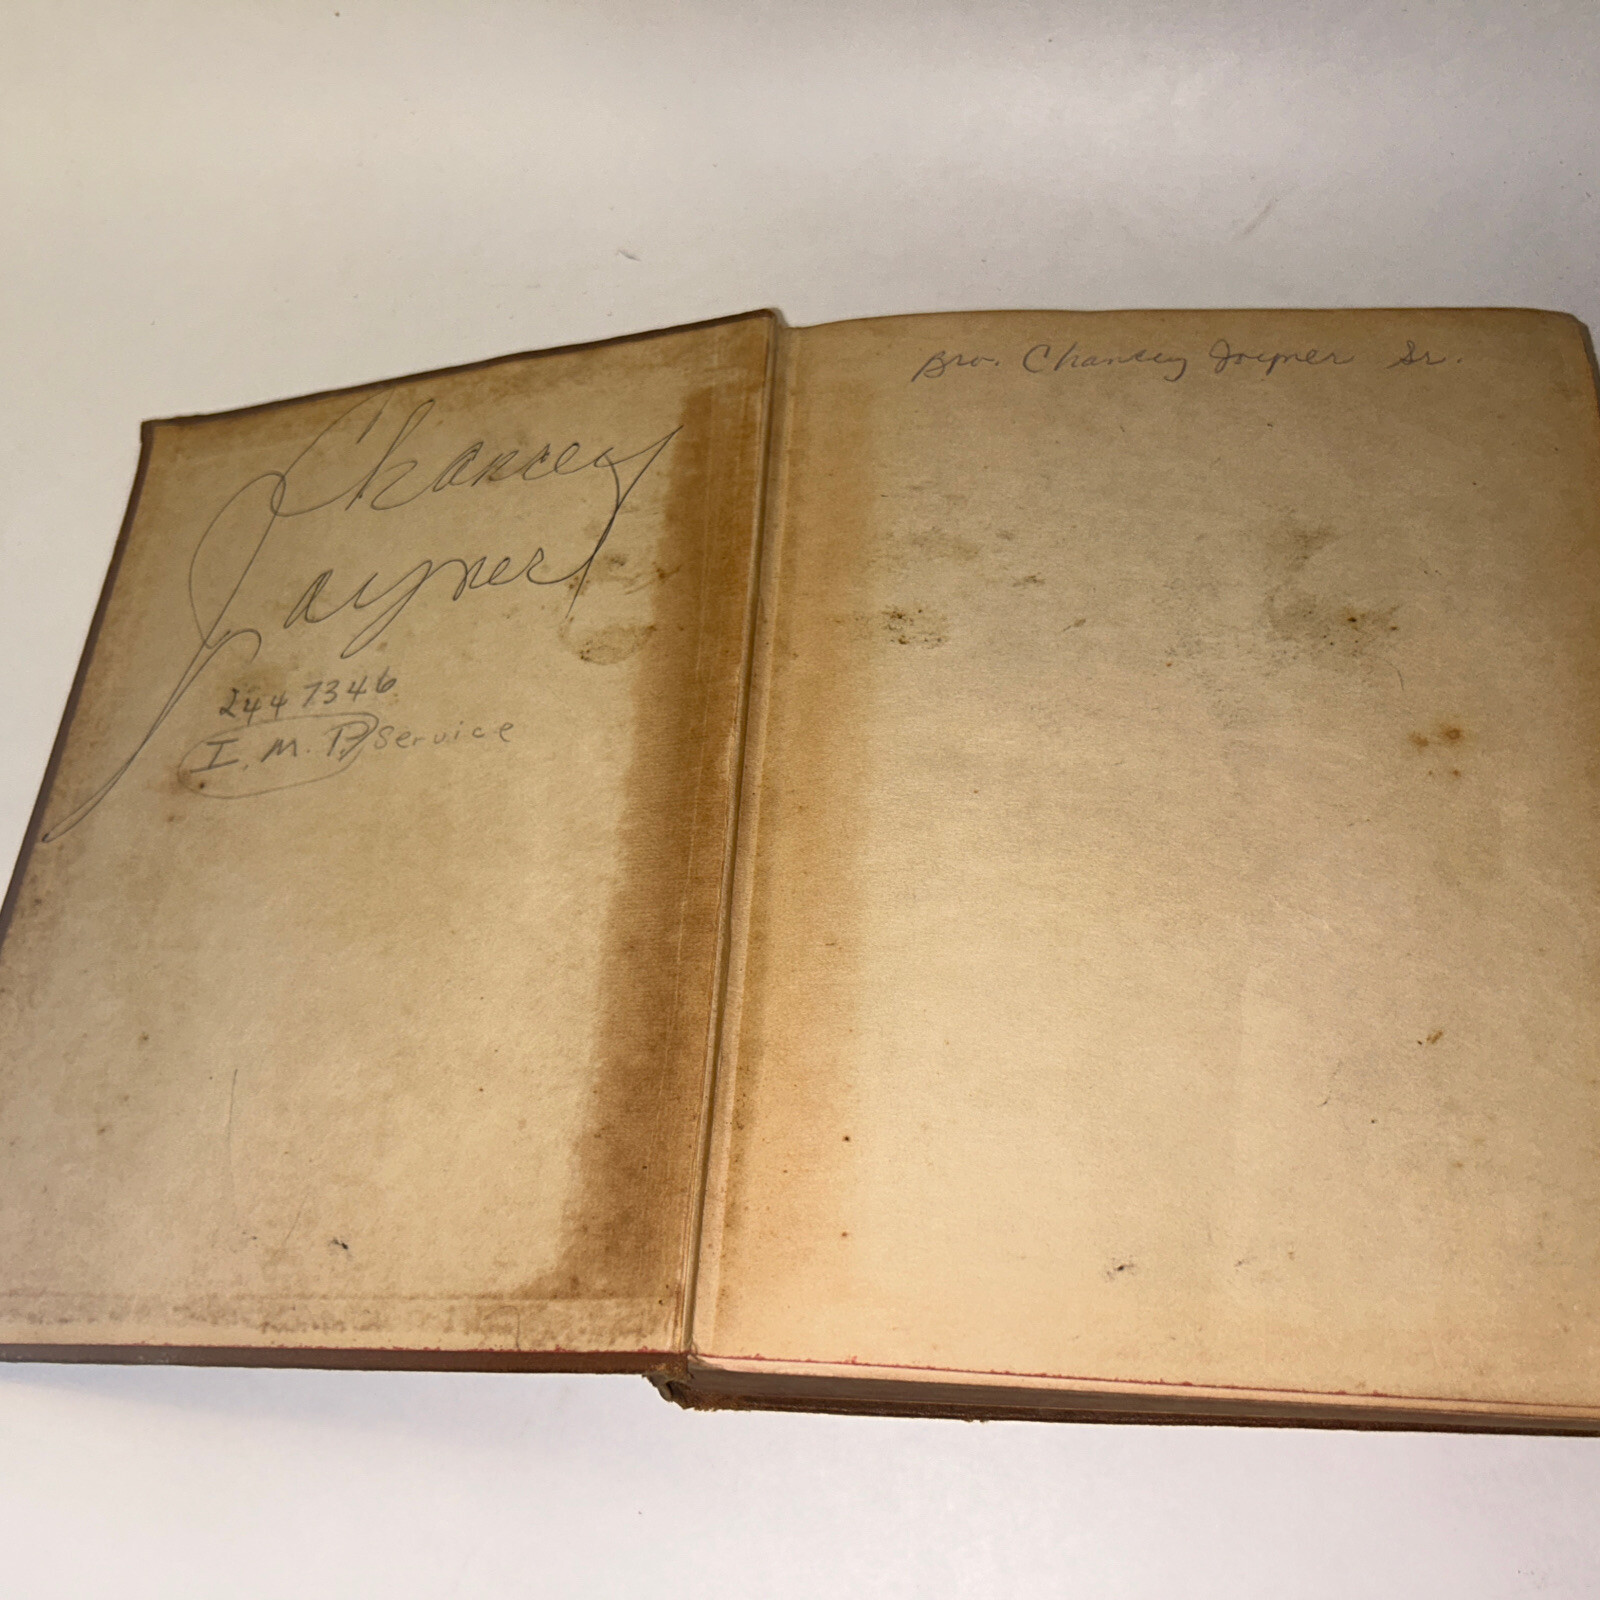 Chancey
Joyner
244 7346
I. M. P. Service
Bro. Chancey Joyner Sr.